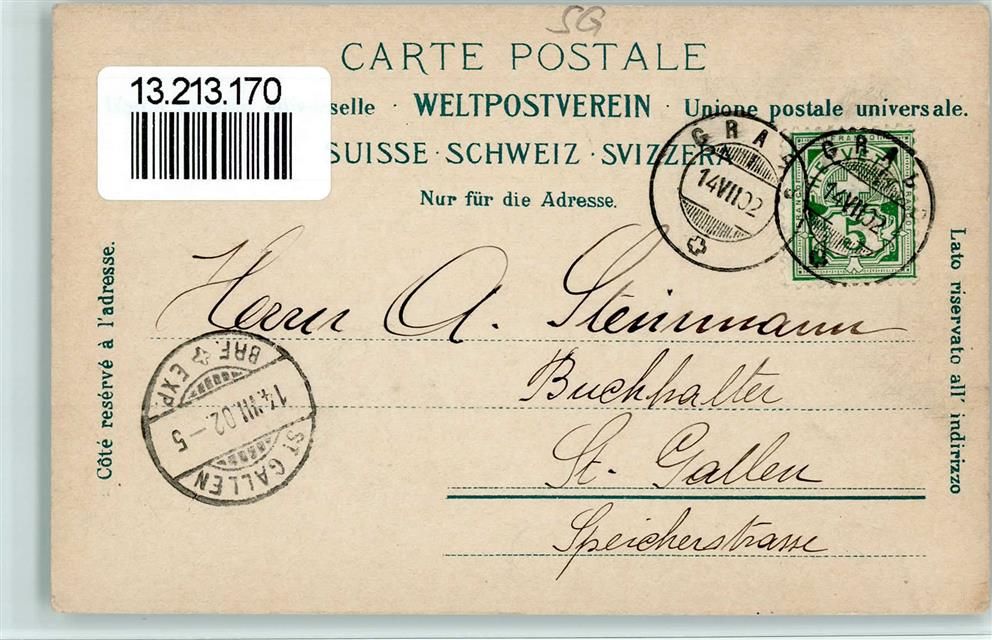 SG
CARTE POSTALE
13.213.170
selle · WELTPOSTVEREIN · Unione postale universale.
SUISSE · SCHWEIZ · SVIZZERA
Nur für die Adresse.
14VII02
HELVETIA
14VII02
5
Côté resérvé à l'adresse.
Lato riservato all' indirizzo
Herrn A. Steinmann
Buchhalter
St. Gallen
Speicherstrasse
BRF. EXP.
14.VII.02.–5
ST. GALLEN